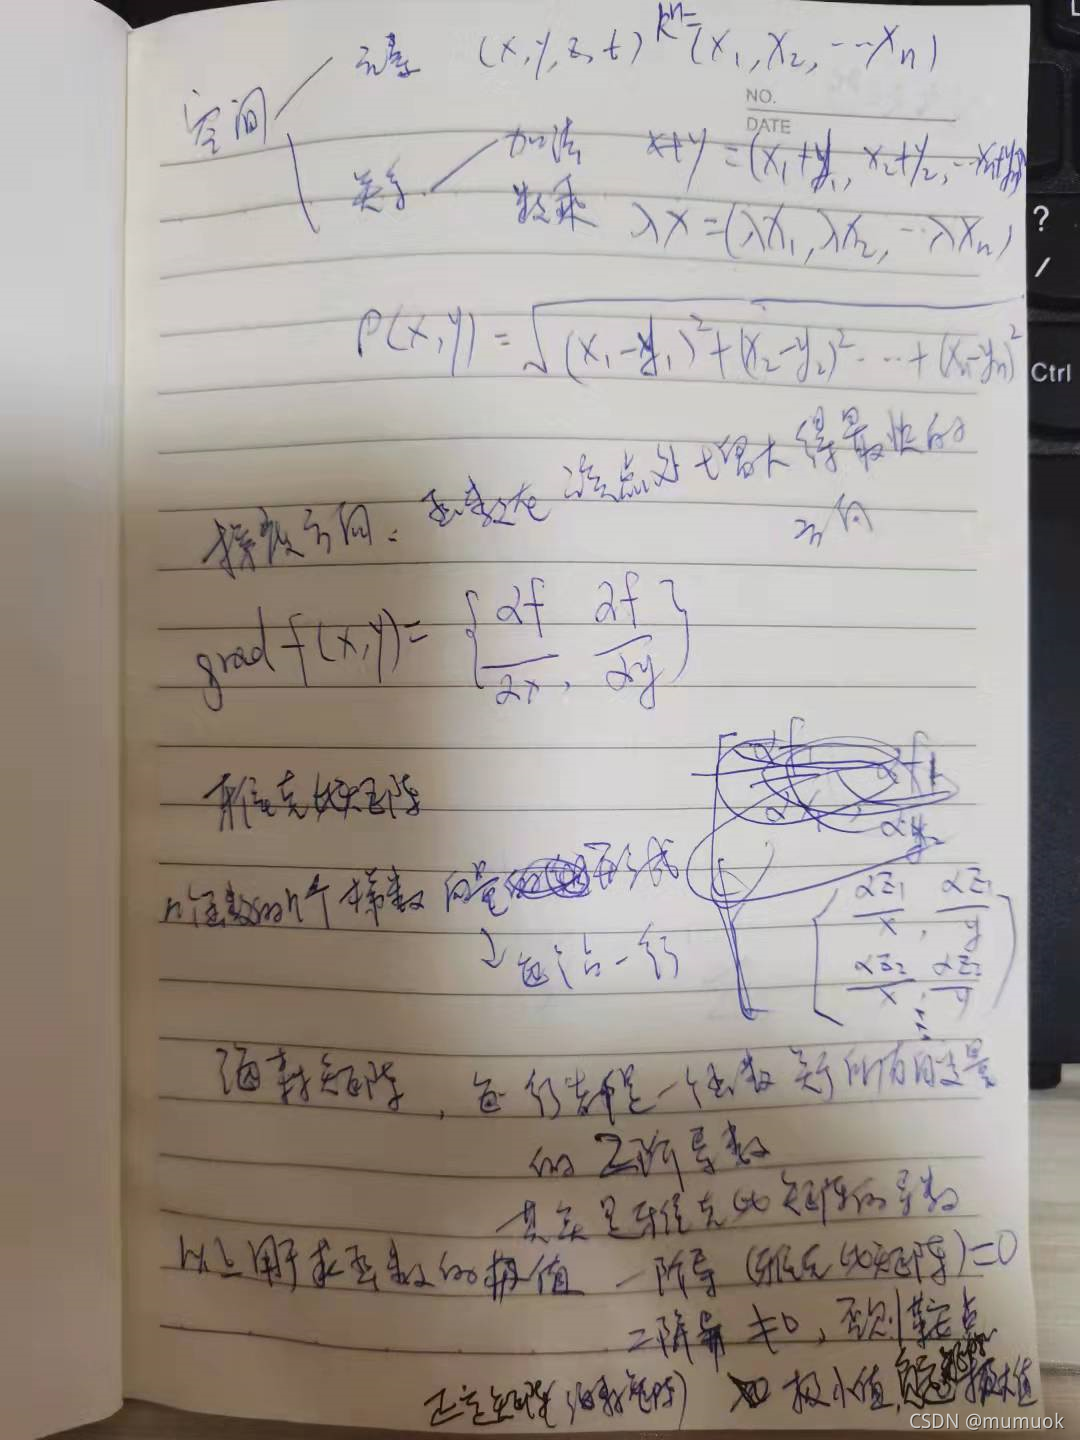 空间 元素 (x,y,z,t) Rⁿ=(x₁,x₂,…xₙ)
NO.
DATE
关系 加法 x+y=(x₁+y₁, x₂+y₂,…xₙ+yₙ)
数乘 λx=(λx₁,λx₂,…λxₙ)
ρ(x,y)=√((x₁-y₁)²+(x₂-y₂)²…+(xₙ-yₙ)²)
梯度方向: 函数在该点处增大得最快的
方向
grad f(x,y)={∂f/∂x, ∂f/∂y}
雅克比矩阵
n个函数的n个梯数向量形成
每个占一行
∂z₁/x, ∂z₁/y
∂z₂/x, ∂z₂/y
⋮
海森矩阵,每行都是一个函数关于所有的变量
的二阶导数
其实是雅克比矩阵的导数
以上用于求函数的极值 一阶导(雅克比矩阵)=0
二阶导≠0,否则鞍点
正定矩阵(海森矩阵) 极小值, 极大值
?
/
Ctrl
CSDN @mumuok